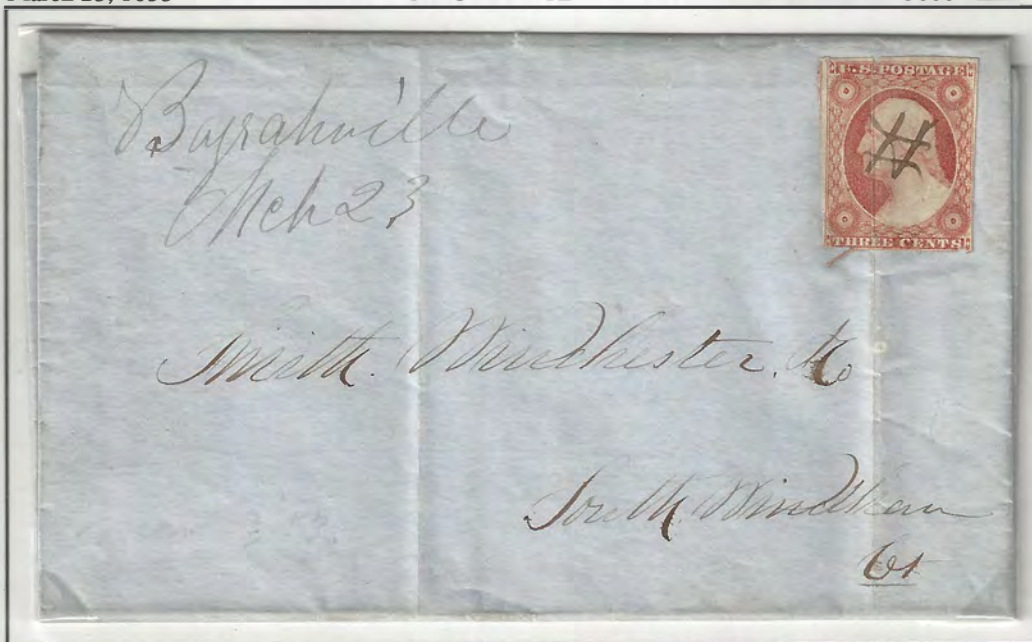 Bozrahville
Mch 23
U.S. POSTAGE
THREE CENTS
Smith. Winchester. & Co
South Windham
Ct